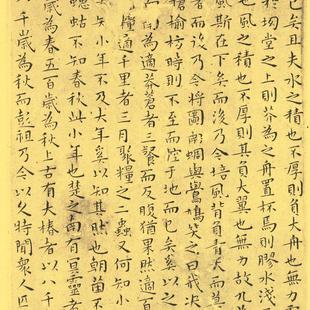 已矣且夫水之積也不厚則負大舟也無力
於坳堂之上則芥為之舟置杯焉則膠水淺
也風之積也不厚則其負大翼也無力故九
風斯在下矣而後乃今培風背負青天而莫
者而後乃今將圖南蜩與鷽鳩笑之曰我決
槍榆枋時則不至而控于地而已矣奚以之
南為適莽蒼者三餐而反腹猶果然適百
糧適千里者三月聚糧之二蟲又何知小
知小年不及大年奚以知其然也朝菌不
蟪蛄不知春秋此小年也楚之南有冥靈者
歲為春五百歲為秋上古有大椿者以八千
千歲為秋而彭祖乃今以久特聞眾人匹